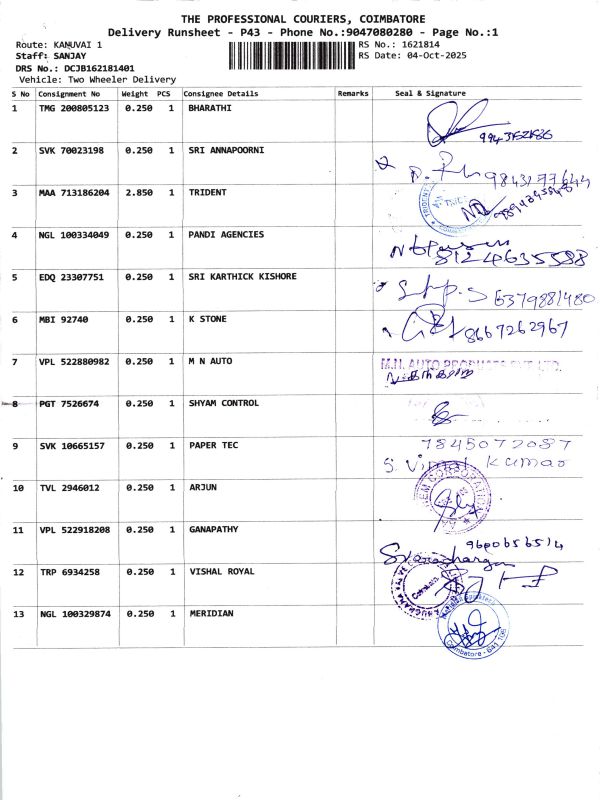 THE PROFESSIONAL COURIERS, COIMBATORE
Delivery Runsheet - P43 - Phone No.:9047080280 - Page No.:1
Route: KANUVAI 1 RS No.: 1621814
Staff: SANJAY RS Date: 04-Oct-2025
DRS No.: DCJB162181401
Vehicle: Two Wheeler Delivery
S No Consignment No Weight PCS Consignee Details Remarks Seal & Signature
1 TMG 200805123 0.250 1 BHARATHI
2 SVK 70023198 0.250 1 SRI ANNAPOORNI
3 MAA 713186204 2.850 1 TRIDENT
4 NGL 100334049 0.250 1 PANDI AGENCIES
8124635588
5 EDQ 23307751 0.250 1 SRI KARTHICK KISHORE
6379881480
6 MBI 92740 0.250 1 K STONE
8667262967
7 VPL 522880982 0.250 1 M N AUTO
M.N. AUTO PRODUCTS PVT. LTD.
8 PGT 7526674 0.250 1 SHYAM CONTROL
9 SVK 10665157 0.250 1 PAPER TEC
7845072087
S. Vimal Kumar
10 TVL 2946012 0.250 1 ARJUN
11 VPL 522918208 0.250 1 GANAPATHY
9600656514
12 TRP 6934258 0.250 1 VISHAL ROYAL
13 NGL 100329874 0.250 1 MERIDIAN